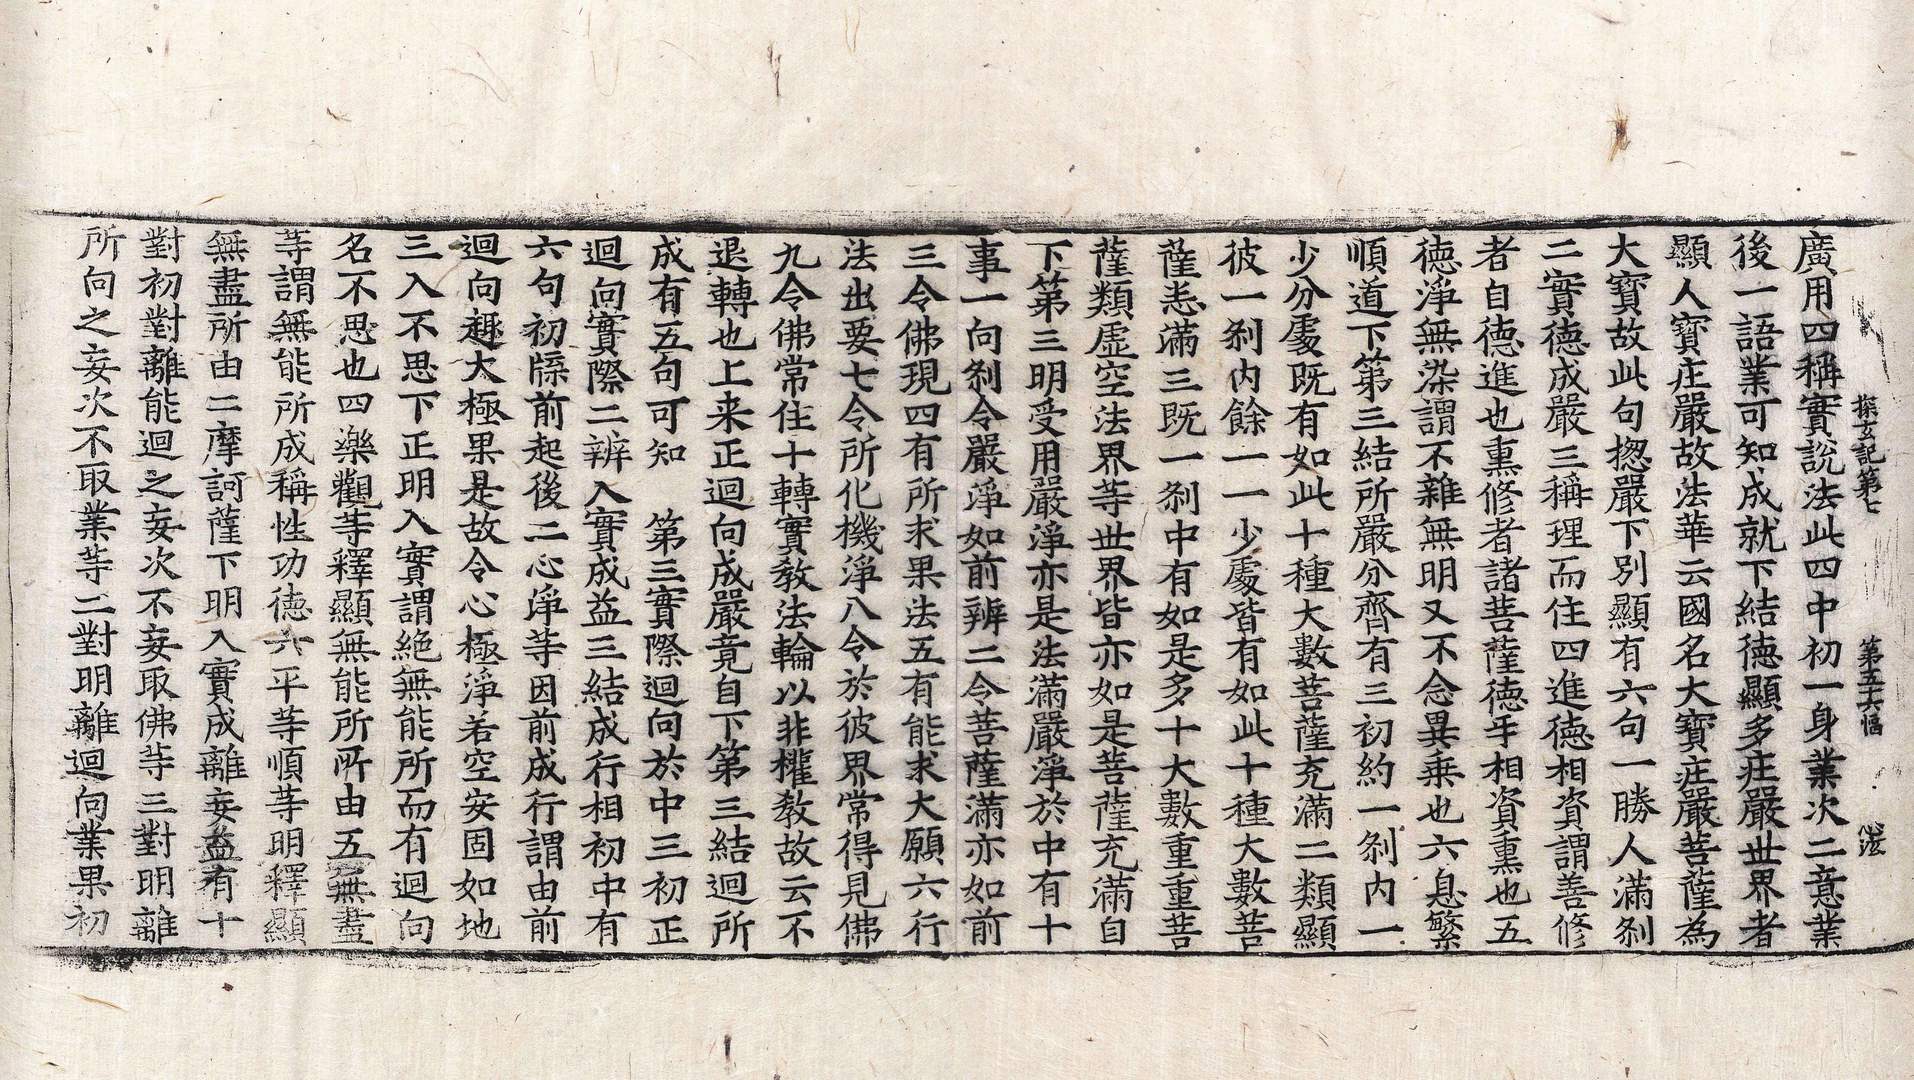 探玄記第七 第五十六幅 心法
廣用四稱實說法此四中初一身業次二意業
後一語業可知成就下結德顯多庄嚴世界者
顯人寶庄嚴故法華云國名大寶庄嚴菩薩為
大寶故此句揔嚴下別顯有六句一勝人滿刹
二實德成嚴三稱理而住四進德相資謂善修
者自德進也熏修者諸菩薩德手相資熏也五
德淨無染謂不雜無明又不念異乗也六息繁
順道下第三結所嚴分齊有三初約一刹內一
少分處既有如此十種大數菩薩充滿二類顯
彼一刹内餘一一少處皆有如此十種大數菩
薩恙滿三既一刹中有如是多十大數重重菩
薩類虛空法界等世界皆亦如是菩薩充滿自
下第三明受用嚴淨亦是法滿嚴淨於中有十
事一向刹令嚴淨如前辨二令菩薩滿亦如前
三令佛現四有所求果法五有能求大願六行
法出要七令所化機淨八令於彼界常得見佛
九令佛常住十轉實教法輪以非權教故云不
退轉也上来正迴向成嚴竟自下第三結迴所
成有五句可知　第三實際迴向於中三初正
迴向實際二辨入實成益三結成行相初中有
六句初牒前起後二心淨等因前成行謂由前
迴向趣大極果是故令心極淨若空安固如地
三入不思下正明入實謂絶無能所而有迴向
名不思也四樂觀等釋顯無能所所由五無盡
等謂無能所成稱性功德六平等順等明釋顯
無盡所由二摩訶薩下明入實成離妄益有十
對初對離能迴之妄次不妄取佛等三對明離
所向之妄次不取業等二對明離迴向業果初